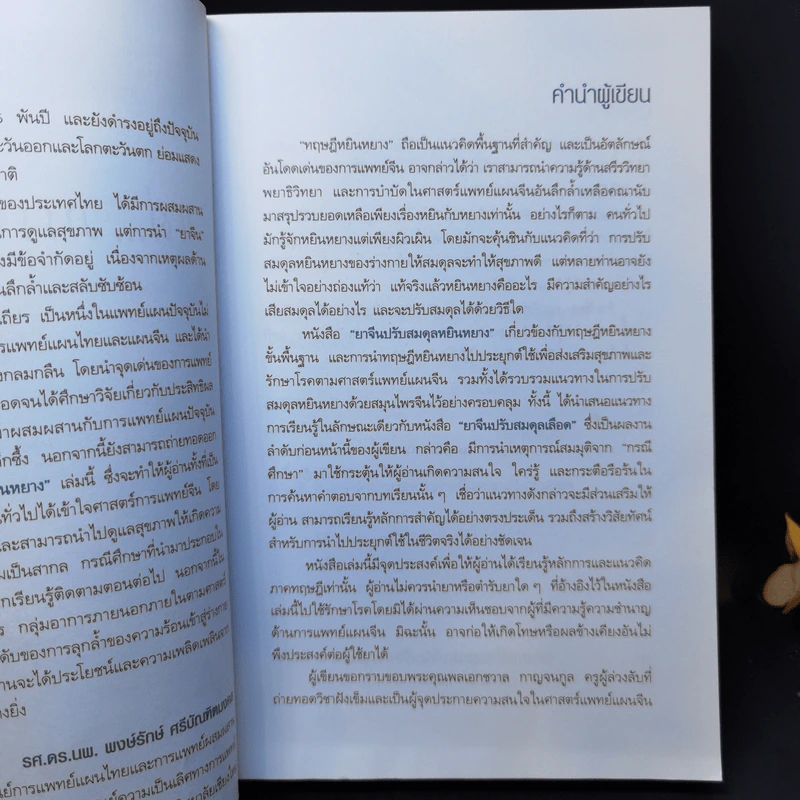 พันปี และยังดำรงอยู่ถึงปัจจุบัน
ะวันออกและโลกตะวันตก ย่อมแสดง
าติ
ของประเทศไทย ได้มีการผสมผสาน
การดูแลสุขภาพ แต่การนำ "ยาจีน"
งมีข้อจำกัดอยู่ เนื่องจากเหตุผลด้าน
นลึกล้ำและสลับซับซ้อน
ถียร เป็นหนึ่งในแพทย์แผนปัจจุบันไม่
ารแพทย์แผนไทยและแผนจีน และได้นำ
งกลมกลืน โดยนำจุดเด่นของการแพทย์
อดจนได้ศึกษาวิจัยเกี่ยวกับประสิทธิผล
าผสมผสานกับการแพทย์แผนปัจจุบัน
ึกซึ้ง นอกจากนี้ยังสามารถถ่ายทอดออก
ินหยาง" เล่มนี้ ซึ่งจะทำให้ผู้อ่านทั้งที่เป็น
ทั่วไปได้เข้าใจศาสตร์การแพทย์จีน โดย
และสามารถนำไปดูแลสุขภาพให้เกิดความ
มเป็นสากล กรณีศึกษาที่นำมาประกอบใน
กเรียนรู้ติดตามตอนต่อไป นอกจากนี้ใน
ร กลุ่มอาการภายนอกภายในตามศาสตร์
ดับของการลุกล้ำของความร้อนเข้าสู่ร่างกาย
านจะได้ประโยชน์และความเพลิดเพลินจาก
างยิ่ง
รศ.ดร.นพ. พงษ์รักษ์ ศรีบัณฑิตมงคล
นย์การแพทย์แผนไทยและการแพทย์ผสมผสาน
ย์ความเป็นเลิศทางการแพทย์
คำนำผู้เขียน
"ทฤษฎีหยินหยาง" ถือเป็นแนวคิดพื้นฐานที่สำคัญ และเป็นอัตลักษณ์
อันโดดเด่นของการแพทย์จีน อาจกล่าวได้ว่า เราสามารถนำความรู้ด้านสรีรวิทยา
พยาธิวิทยา และการบำบัดในศาสตร์แพทย์แผนจีนอันลึกล้ำเหลือคณานับ
มาสรุปรวบยอดเหลือเพียงเรื่องหยินกับหยางเท่านั้น อย่างไรก็ตาม คนทั่วไป
มักรู้จักหยินหยางแต่เพียงผิวเผิน โดยมักจะคุ้นชินกับแนวคิดที่ว่า การปรับ
สมดุลหยินหยางของร่างกายให้สมดุลจะทำให้สุขภาพดี แต่หลายท่านอาจยัง
ไม่เข้าใจอย่างถ่องแท้ว่า แท้จริงแล้วหยินหยางคืออะไร มีความสำคัญอย่างไร
เสียสมดุลได้อย่างไร และจะปรับสมดุลได้ด้วยวิธีใด
หนังสือ "ยาจีนปรับสมดุลหยินหยาง" เกี่ยวข้องกับทฤษฎีหยินหยาง
ขั้นพื้นฐาน และการนำทฤษฎีหยินหยางไปประยุกต์ใช้เพื่อส่งเสริมสุขภาพและ
รักษาโรคตามศาสตร์แพทย์แผนจีน รวมทั้งได้รวบรวมแนวทางในการปรับ
สมดุลหยินหยางด้วยสมุนไพรจีนไว้อย่างครอบคลุม ทั้งนี้ ได้นำเสนอแนวทาง
การเรียนรู้ในลักษณะเดียวกับหนังสือ "ยาจีนปรับสมดุลเลือด" ซึ่งเป็นผลงาน
ลำดับก่อนหน้านี้ของผู้เขียน กล่าวคือ มีการนำเหตุการณ์สมมุติจาก "กรณี
ศึกษา" มาใช้กระตุ้นให้ผู้อ่านเกิดความสนใจ ใคร่รู้ และกระตือรือร้นใน
การค้นหาคำตอบจากบทเรียนนั้น ๆ เชื่อว่าแนวทางดังกล่าวจะมีส่วนเสริมให้
ผู้อ่าน สามารถเรียนรู้หลักการสำคัญได้อย่างตรงประเด็น รวมถึงสร้างวิสัยทัศน์
สำหรับการนำไปประยุกต์ใช้ในชีวิตจริงได้อย่างชัดเจน
หนังสือเล่มนี้มีจุดประสงค์เพื่อให้ผู้อ่านได้เรียนรู้หลักการและแนวคิด
ภาคทฤษฎีเท่านั้น ผู้อ่านไม่ควรนำยาหรือตำรับยาใด ๆ ที่อ้างอิงไว้ในหนังสือ
เล่มนี้ไปใช้รักษาโรคโดยมิได้ผ่านความเห็นชอบจากผู้ที่มีความรู้ความชำนาญ
ด้านการแพทย์แผนจีน มิฉะนั้น อาจก่อให้เกิดโทษหรือผลข้างเคียงอันไม่
พึงประสงค์ต่อผู้ใช้ยาได้
ผู้เขียนขอกราบขอบพระคุณพลเอกชวาล กาญจนกูล ครูผู้ล่วงลับที่
ถ่ายทอดวิชาฝังเข็มและเป็นผู้จุดประกายความสนใจในศาสตร์แพทย์แผนจีน